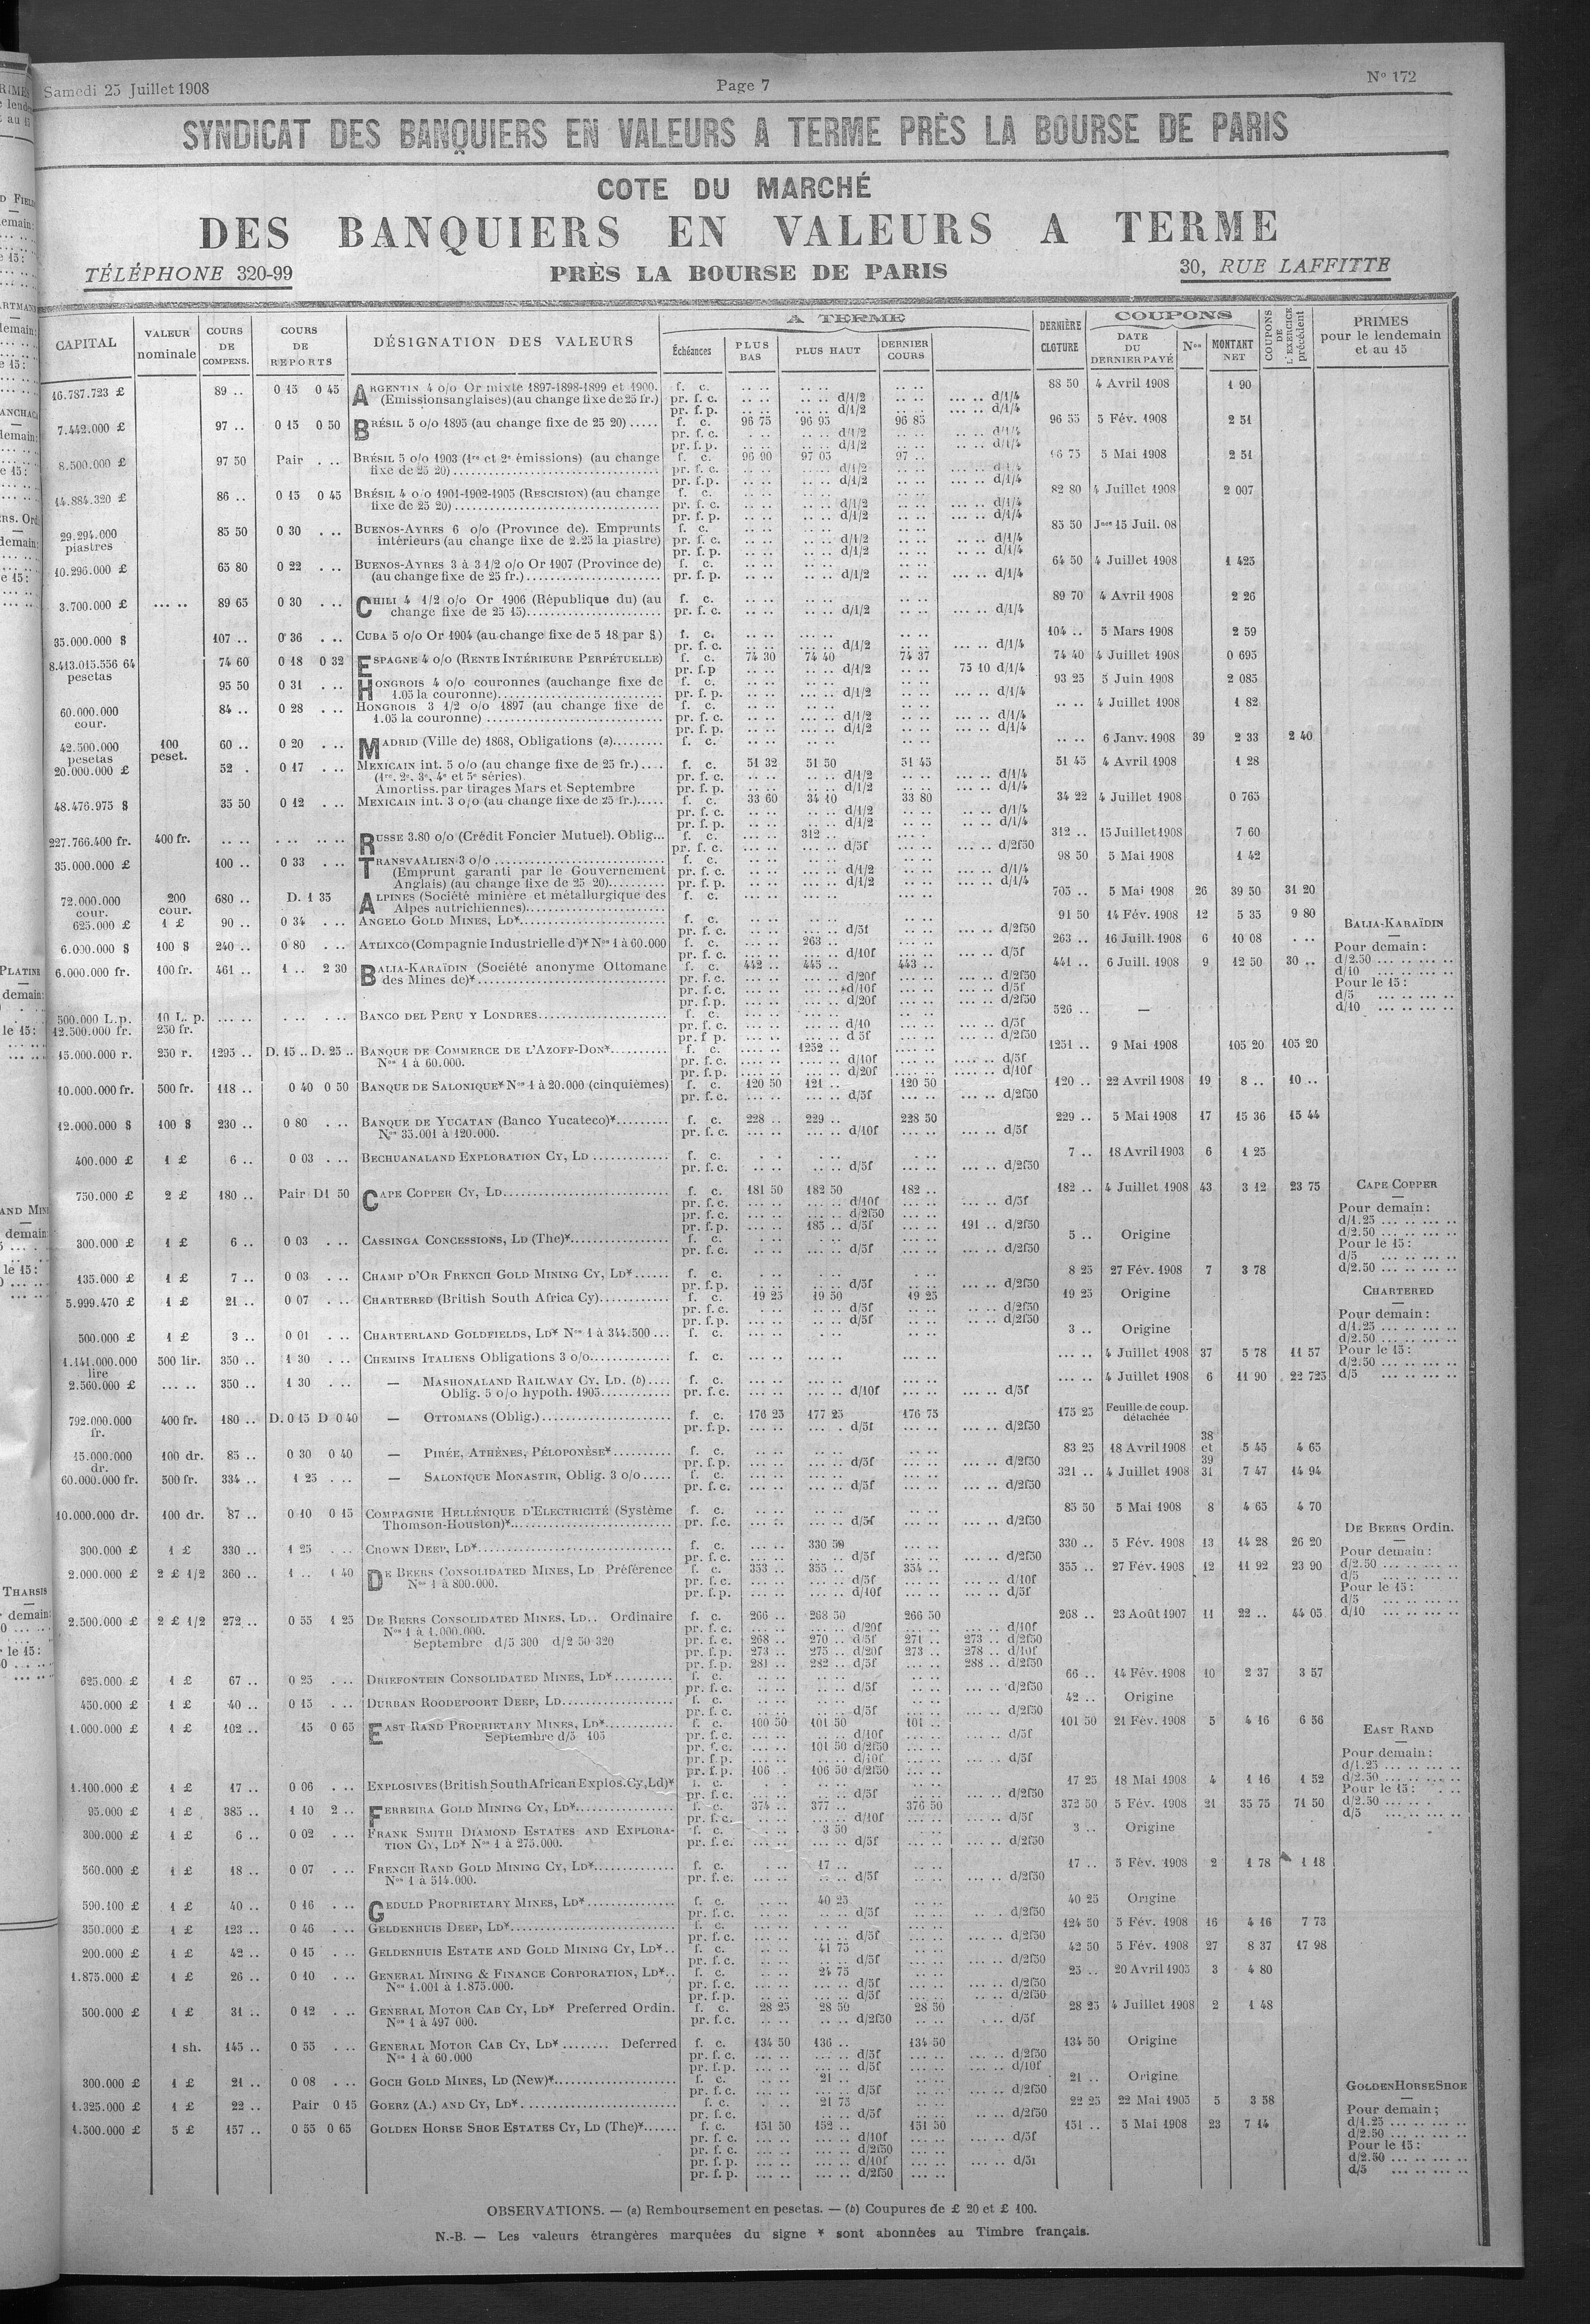 Samedi 25 Juillet 1908 Page 7 No 172
SYNDICAT DES BANQUIERS EN VALEURS A TERME PRÈS LA BOURSE DE PARIS
COTE DU MARCHÉ
DES BANQUIERS EN VALEURS A TERME
TÉLÉPHONE 320-99 PRÈS LA BOURSE DE PARIS 30, RUE LAFFITTE
CAPITAL VALEUR nominale COURS DE COMPENS. COURS DE REPORTS DÉSIGNATION DES VALEURS A TERME Échéances PLUS BAS PLUS HAUT DERNIER COURS DERNIÈRE CLOTURE COUPONS DATE DU DERNIER PAYÉ Nos MONTANT NET COUPONS DE L'EXERCICE précédent PRIMES pour le lendemain et au 15
16.787.723 £ 89 .. 0 15 0 45 ARGENTIN 4 o/o Or mixte 1897-1898-1899 et 1900. f. c. 88 50 4 Avril 1908 1 90
(Emissions anglaises) (au change fixe de 25 fr.) pr. f. c. d/1/2 d/1/4
pr. f. p. d/1/2 d/1/4
7.442.000 £ 97 .. 0 15 0 50 BRÉSIL 5 o/o 1895 (au change fixe de 25 20) ..... f. c. 96 75 96 95 96 85 96 55 5 Fév. 1908 2 51
pr. f. c. d/1/2 d/1/4
pr. f. p. d/1/2 d/1/4
8.500.000 £ 97 50 Pair BRÉSIL 5 o/o 1903 (1re et 2e émissions) (au change f. c. 96 90 97 05 97 .. 5 Mai 1908 2 51
fixe de 25 20) pr. f. c. d/1/2 d/1/4
pr. f.p. d/1/2
14.884.320 £ 86 .. 0 15 0 45 BRÉSIL 4 o/o 1901-1902-1905 (RESCISION) (au change f. c. 82 80 4 Juillet 1908 2 007
fixe de 25 20) pr. f. c. d/1/2 d/1/4
pr. f. p. d/1/2 d/1/4
29.294.000 piastres 85 50 0 30 BUENOS-AYRES 6 o/o (Province de). Emprunts f. c. 85 50 Jnce 15 Juil. 08
intérieurs (au change fixe de 2.25 la piastre) pr. f. c. d/1/2 d/1/4
pr. f. p. d/1/2 d/1/4
10.296.000 £ 65 80 0 22 BUENOS-AYRES 3 à 3 1/2 o/o Or 1907 (Province de) f. c. 64 50 4 Juillet 1908 1 425
(au change fixe de 25 fr.) pr. f. p. d/1/2 d/1/4
3.700.000 £ 89 65 0 30 CHILI 4 1/2 o/o Or 1906 (République du) (au f. c. 89 70 4 Avril 1908 2 26
change fixe de 25 15) pr. f. c. d/1/2 d/1/4
35.000.000 $ 107 .. 0 36 CUBA 5 o/o Or 1904 (au change fixe de 5 18 par $) f. c. 104 .. 5 Mars 1908 2 59
pr. f. c. d/1/2 d/1/4
8.413.015.556 64 pesetas 74 60 0 18 0 32 ESPAGNE 4 o/o (RENTE INTÉRIEURE PERPÉTUELLE) f. c. 74 30 74 40 74 37 74 40 4 Juillet 1908 0 695
pr. f.p d/1/2 75 10 d/1/4
95 50 0 31 HONGROIS 4 o/o couronnes (au change fixe de f. c. 93 25 5 Juin 1908 2 085
1.05 la couronne) pr. f. p. d/1/2 d/1/4
60.000.000 cour. 84 .. 0 28 HONGROIS 3 1/2 o/o 1897 (au change fixe de f. c. 4 Juillet 1908 1 82
1.05 la couronne) pr. f. c. d/1/2 d/1/4
pr. f. p. d/1/2 d/1/4
42.500.000 pesetas 100 peset. 60 .. 0 20 MADRID (Ville de) 1868, Obligations (a) f. c. 6 Janv. 1908 39 2 33 2 40
20.000.000 £ 52 . 0 17 MEXICAIN int. 5 o/o (au change fixe de 25 fr.) f. c. 51 32 51 50 51 45 51 45 4 Avril 1908 1 28
(1re, 2e, 3e, 4e et 5e séries) pr. f. c. d/1/2 d/1/4
Amortiss. par tirages Mars et Septembre pr. f. p. d/1/2 d/1/4
48.476.975 $ 35 50 0 12 MEXICAIN int. 3 o/o (au change fixe de 25 fr.) f. c. 33 60 34 10 33 80 34 22 4 Juillet 1908 0 765
pr. f. c. d/1/2 d/1/4
pr. f. p. d/1/2 d/1/4
227.766.400 fr. 400 fr. RUSSE 3.80 o/o (Crédit Foncier Mutuel). Oblig... f. c. 312 .. 312 .. 15 Juillet 1908 7 60
pr. f. c. d/5f d/2f50
35.000.000 £ 100 .. 0 33 TRANSVAALIEN 3 o/o f. c. 98 50 5 Mai 1908 1 42
(Emprunt garanti par le Gouvernement pr. f. c. d/1/2 d/1/4
Anglais) (au change fixe de 25 20) pr. f. p. d/1/2 d/1/4
72.000.000 cour. 200 cour. 680 .. D. 1 35 ALPINES (Société minière et métallurgique des f. c. 705 .. 5 Mai 1908 26 39 50 31 20
Alpes autrichiennes)
625.000 £ 1 £ 90 .. 0 34 ANGELO GOLD MINES, LD* f. c. 91 50 14 Fév. 1908 12 5 35 9 80
pr. f. c. d/5f d/2f50
6.000.000 $ 100 $ 240 .. 0 80 ATLIXCO (Compagnie Industrielle d')* Nos 1 à 60.000 f. c. 263 .. 263 .. 16 Juill. 1908 6 10 08
pr. f. c. d/10f d/5f
6.000.000 fr. 100 fr. 461 .. 1 .. 2 30 BALIA-KARAÏDIN (Société anonyme Ottomane f. c. 442 .. 445 .. 443 .. 441 .. 6 Juill. 1908 9 12 50 30 ..
des Mines de)* pr. f. c. d/20f d/2f50
pr. f. c. d/10f d/5f
pr. f. p. d/20f d/2f50
BALIA-KARAÏDIN
Pour demain :
d/2.50
d/10
Pour le 15 :
d/5
d/10
500.000 L.p. 12.500.000 fr. 10 L. p. 250 fr. BANCO DEL PERU Y LONDRES f. c. 526 .. —
pr. f. c. d/10 d/5f
pr. f p. d 5f d/2f50
15.000.000 r. 250 r. 1295 .. D. 15 .. D. 25 .. BANQUE DE COMMERCE DE L'AZOFF-DON* f. c. 1252 .. 1251 .. 9 Mai 1908 105 20 105 20
Nos 1 à 60.000. pr. f. c. d/10f d/5f
pr. f. p. d/20f d/10f
10.000.000 fr. 500 fr. 118 .. 0 40 0 50 BANQUE DE SALONIQUE* Nos 1 à 20.000 (cinquièmes) f. c. 120 50 121 .. 120 50 120 .. 22 Avril 1908 19 8 .. 10 ..
pr. f. c. d/5f d/2f50
12.000.000 $ 100 $ 230 .. 0 80 BANQUE DE YUCATAN (Banco Yucateco)* f. c. 228 .. 229 .. 228 50 229 .. 5 Mai 1908 17 15 36 15 44
Nos 35.001 à 120.000. pr. f. c. d/10f d/5f
400.000 £ 1 £ 6 .. 0 03 BECHUANALAND EXPLORATION CY, LD f. c. 7 .. 18 Avril 1903 6 1 25
pr. f. c. d/5f d/2f50
750.000 £ 2 £ 180 .. Pair D1 50 CAPE COPPER CY, LD f. c. 181 50 182 50 182 .. 182 .. 4 Juillet 1908 43 3 12 23 75
pr. f. c. d/10f d/5f
pr. f. c. d/2f50
pr. f. p. 185 .. d/5f 191 .. d/2f50
CAPE COPPER
Pour demain :
d/1.25
d/2.50
Pour le 15 :
d/5
d/2.50
300.000 £ 1 £ 6 .. 0 03 CASSINGA CONCESSIONS, LD (The)* f. c. 5 .. Origine
pr. f. c. d/5f d/2f50
135.000 £ 1 £ 7 .. 0 03 CHAMP D'OR FRENCH GOLD MINING CY, LD* f. c. 8 25 27 Fév. 1908 7 3 78
pr. f. p. d/5f d/2f50
5.999.470 £ 1 £ 21 .. 0 07 CHARTERED (British South Africa Cy) f. c. 19 25 19 50 19 25 19 25 Origine
pr. f. c. d/5f d/2f50
pr. f. p. d/5f d/2f50
CHARTERED
Pour demain :
d/1.25
d/2.50
Pour le 15 :
d/2.50
d/5
500.000 £ 1 £ 3 .. 0 01 CHARTERLAND GOLDFIELDS, LD* Nos 1 à 344.500 ... f. c. 3 .. Origine
1.141.000.000 lire 500 lir. 350 .. 1 30 CHEMINS ITALIENS Obligations 3 o/o f. c. 4 Juillet 1908 37 5 78 11 57
2.560.000 £ 350 .. 1 30 — MASHONALAND RAILWAY CY, LD. (b) f. c. 4 Juillet 1908 6 11 90 22 725
Oblig. 5 o/o hypoth. 1905 pr. f. c. d/10f d/5f
792.000.000 fr. 400 fr. 180 .. D. 0 15 D 0 40 — OTTOMANS (Oblig.) f. c. 176 25 177 25 176 75 175 25 Feuille de coup. détachée
pr. f.p. d/5f d/2f50
15.000.000 dr. 100 dr. 85 .. 0 30 0 40 — PIRÉE, ATHÈNES, PÉLOPONÈSE* f. c. 83 25 18 Avril 1908 38 et 39 5 45 4 65
pr. f. p. d/5f d/2f50
60.000.000 fr. 500 fr. 334 .. 1 25 — SALONIQUE MONASTIR, Oblig. 3 o/o f. c. 321 .. 4 Juillet 1908 31 7 47 14 94
pr. f. c. d/5f d/2f50
10.000.000 dr. 100 dr. 87 .. 0 10 0 15 COMPAGNIE HELLÉNIQUE D'ELECTRICITÉ (Système f. c. 85 50 5 Mai 1908 8 4 65 4 70
Thomson-Houston)* pr. f.c. d/5f d/2f50
300.000 £ 1 £ 330 .. 1 25 CROWN DEEP, LD* f. c. 330 50 330 .. 5 Fév. 1908 13 14 28 26 20
pr. f. c. d/5f d/2f50
2.000.000 £ 2 £ 1/2 360 .. 1 .. 1 40 DE BEERS CONSOLIDATED MINES, LD Préférence f. c. 353 .. 355 .. 354 .. 355 .. 27 Fév. 1908 12 11 92 23 90
Nos 1 à 800.000. pr. f. c. d/5f d/10f
pr. f. p. d/10f d/5f
DE BEERS Ordin.
Pour demain :
d/2.50
d/5
Pour le 15 :
d/5
d/10
2.500.000 £ 2 £ 1/2 272 .. 0 55 1 25 DE BEERS CONSOLIDATED MINES, LD.. Ordinaire f. c. 266 .. 268 50 266 50 268 .. 23 Août 1907 11 22 .. 44 05
Nos 1 à 1.000.000. pr. f. c. d/20f d/10f
Septembre d/5 300 d/2 50 320 pr. f. c. 268 .. 270 .. d/5f 271 .. 273 .. d/2f50
pr. f. p. 273 .. 275 .. d/20f 273 .. 278 .. d/10f
pr. f. p. 281 .. 282 .. d/5f 288 .. d/2f50
625.000 £ 1 £ 67 .. 0 25 DRIEFONTEIN CONSOLIDATED MINES, LD* f. c. 66 .. 14 Fév. 1908 10 2 37 3 57
pr. f. c. d/5f d/2f50
450.000 £ 1 £ 40 .. 0 15 DURBAN ROODEPOORT DEEP, LD f. c. 42 .. Origine
pr. f. c. d/5f d/2f50
1.000.000 £ 1 £ 102 .. 15 0 65 EAST RAND PROPRIETARY MINES, LD* f. c. 100 50 101 50 101 .. 101 50 21 Fév. 1908 5 4 16 6 56
Septembre d/5 105 pr. f. c. d/10f d/5f
pr. f. c. 101 50 d/2f50
pr. f. p. d/10f d/5f
pr. f. p. 106 .. 106 50 d/2f50
EAST RAND
Pour demain :
d/1.25
d/2.50
Pour le 15 :
d/2.50
d/5
1.100.000 £ 1 £ 17 .. 0 06 EXPLOSIVES (British South African Explos. Cy, Ld)* f. c. 17 25 18 Mai 1908 4 1 16 1 52
pr. f. c. d/5f d/2f50
95.000 £ 1 £ 385 .. 1 10 2 .. FERREIRA GOLD MINING CY, LD* f. c. 374 .. 377 .. 376 50 372 50 5 Fév. 1908 21 35 75 71 50
pr. f. c. d/10f d/5f
300.000 £ 1 £ 6 .. 0 02 FRANK SMITH DIAMOND ESTATES AND EXPLORA- f. c. 3 50 3 .. Origine
TION CY, LD* Nos 1 à 275.000. pr. f. c. d/5f d/2f50
560.000 £ 1 £ 18 .. 0 07 FRENCH RAND GOLD MINING CY, LD* f. c. 17 .. 17 .. 5 Fév. 1908 2 1 78 1 18
Nos 1 à 514.000. pr. f. c. d/5f d/2f50
590.100 £ 1 £ 40 .. 0 16 GEDULD PROPRIETARY MINES, LD* f. c. 40 25 40 25 Origine
pr. f. c. d/5f d/2f50
350.000 £ 1 £ 123 .. 0 46 GELDENHUIS DEEP, LD* f. c. 124 50 5 Fév. 1908 16 4 16 7 73
pr. f. c. d/5f d/2f50
200.000 £ 1 £ 42 .. 0 15 GELDENHUIS ESTATE AND GOLD MINING CY, LD* f. c. 41 75 42 50 5 Fév. 1908 27 8 37 17 98
pr. f. c. d/5f d/2f50
1.875.000 £ 1 £ 26 .. 0 10 GENERAL MINING & FINANCE CORPORATION, LD* f. c. 24 75 25 .. 20 Avril 1905 3 4 80
Nos 1.001 à 1.875.000. pr. f. c. d/5f d/2f50
pr. f. p. d/5f d/2f50
500.000 £ 1 £ 31 .. 0 12 GENERAL MOTOR CAB CY, LD* Preferred Ordin. f. c. 28 25 28 50 28 50 28 25 4 Juillet 1908 2 1 48
Nos 1 à 497 000. pr. f. c. d/2f50 d/5f
1 sh. 145 .. 0 55 GENERAL MOTOR CAB CY, LD* Deferred f. c. 134 50 136 .. 134 50 134 50 Origine
Nos 1 à 60.000 pr. f. c. d/5f d/2f50
pr. f. p. d/5f d/10f
300.000 £ 1 £ 21 .. 0 08 GOCH GOLD MINES, LD (New)* f. c. 21 .. 21 .. Origine
pr. f. c. d/5f d/2f50
1.325.000 £ 1 £ 22 .. Pair 0 15 GOERZ (A.) AND CY, LD* f. c. 21 75 22 25 22 Mai 1905 5 3 58
pr. f. c. d/5f d/2f50
1.500.000 £ 5 £ 157 .. 0 55 0 65 GOLDEN HORSE SHOE ESTATES CY, LD (The)* f. c. 151 50 152 .. 151 50 151 .. 5 Mai 1908 23 7 14
pr. f. c. d/10f d/5f
pr. f. c. d/2f50
pr. f. p. d/10f d/5f
pr. f. p. d/2f50
GOLDEN HORSE SHOE
Pour demain ;
d/1.25
d/2.50
Pour le 15 :
d/2.50
d/5
OBSERVATIONS. — (a) Remboursement en pesetas. — (b) Coupures de £ 20 et £ 100.
N.-B. — Les valeurs étrangères marquées du signe * sont abonnées au Timbre français.